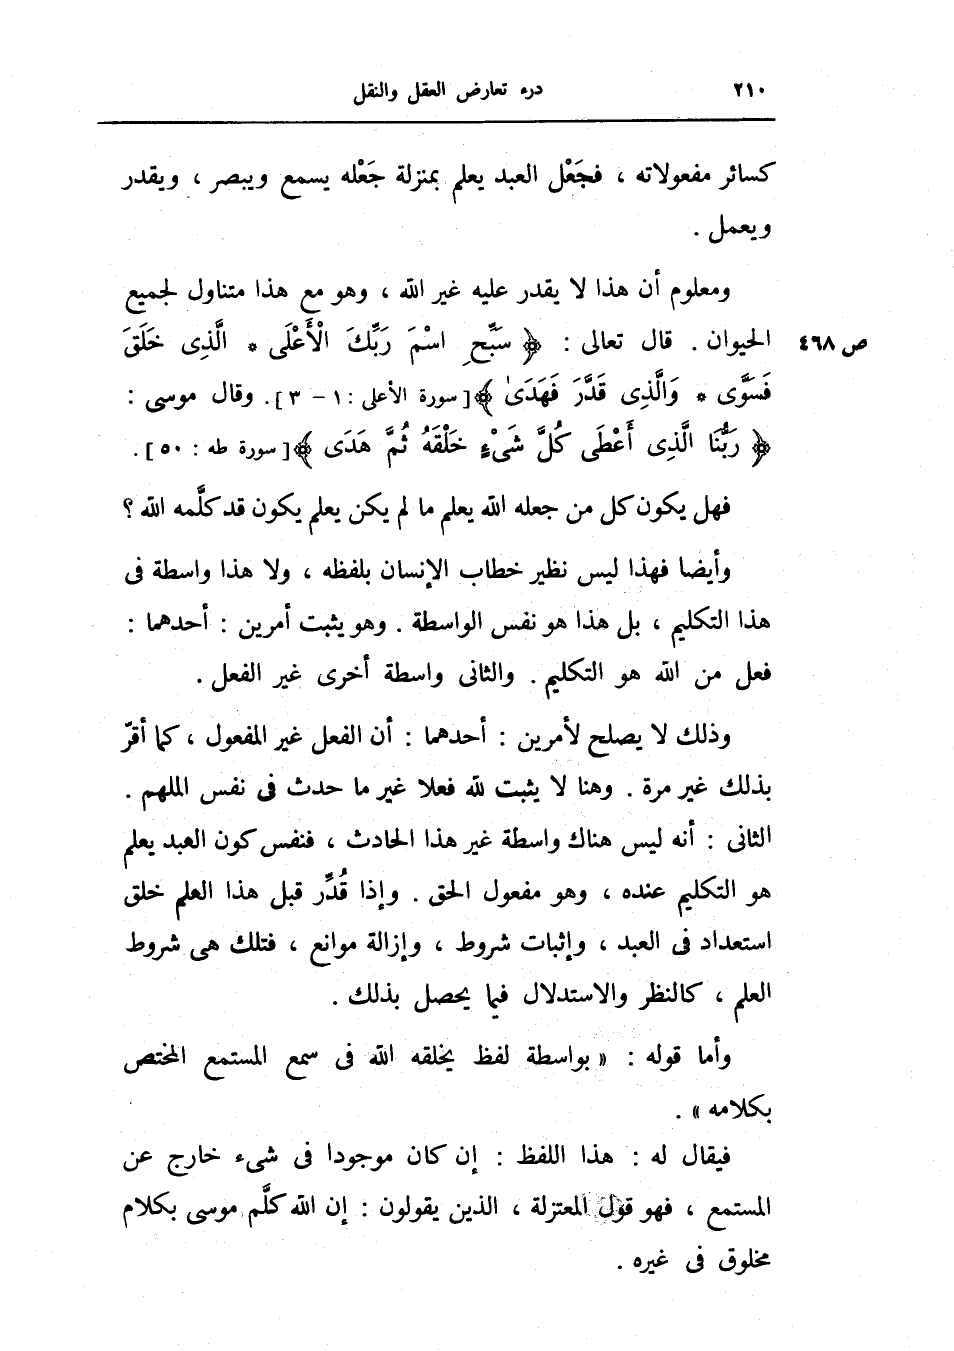 ٢١٠ درء تعارض العقل والنقل
كسائر مفعولاته ، فجَعْل العبد يعلم بمنزلة جَعْله يسمع ويبصر ، ويقدر
ويعمل .
ومعلوم أن هذا لا يقدر عليه غير الله ، وهو مع هذا متناول لجميع
الحيوان . قال تعالى : ﴿ سَبِّحِ اسْمَ رَبِّكَ الْأَعْلَى * الَّذِى خَلَقَ
ص ٤٦٨
فَسَوَّى * وَالَّذِى قَدَّرَ فَهَدَىٰ ﴾ [ سورة الأعلى : ١ – ٣ ] . وقال موسى :
﴿ رَبُّنَا الَّذِى أَعْطَى كُلَّ شَىْءٍ خَلْقَهُ ثُمَّ هَدَى ﴾ [ سورة طه : ٥٠ ] .
فهل يكون كل من جعله الله يعلم ما لم يكن يعلم يكون قد كلَّمه الله ؟
وأيضا فهذا ليس نظير خطاب الإنسان بلفظه ، ولا هذا واسطة فى
هذا التكليم ، بل هذا هو نفس الواسطة . وهو يثبت أمرين : أحدهما :
فعل من الله هو التكليم . والثانى واسطة أخرى غير الفعل .
وذلك لا يصلح لأمرين : أحدهما : أن الفعل غير المفعول ، كما أقرّ
بذلك غير مرة . وهنا لا يثبت لله فعلا غير ما حدث فى نفس الملهم .
الثانى : أنه ليس هناك واسطة غير هذا الحادث ، فنفس كون العبد يعلم
هو التكليم عنده ، وهو مفعول الحق . وإذا قُدِّر قبل هذا العلم خلق
استعداد فى العبد ، وإثبات شروط ، وإزالة موانع ، فتلك هى شروط
العلم ، كالنظر والاستدلال فيما يحصل بذلك .
وأما قوله : « بواسطة لفظ يخلقه الله فى سمع المستمع المختص
بكلامه » .
فيقال له : هذا اللفظ : إن كان موجودا فى شىء خارج عن
المستمع ، فهو قول المعتزلة ، الذين يقولون : إن الله كلَّم موسى بكلام
مخلوق فى غيره .